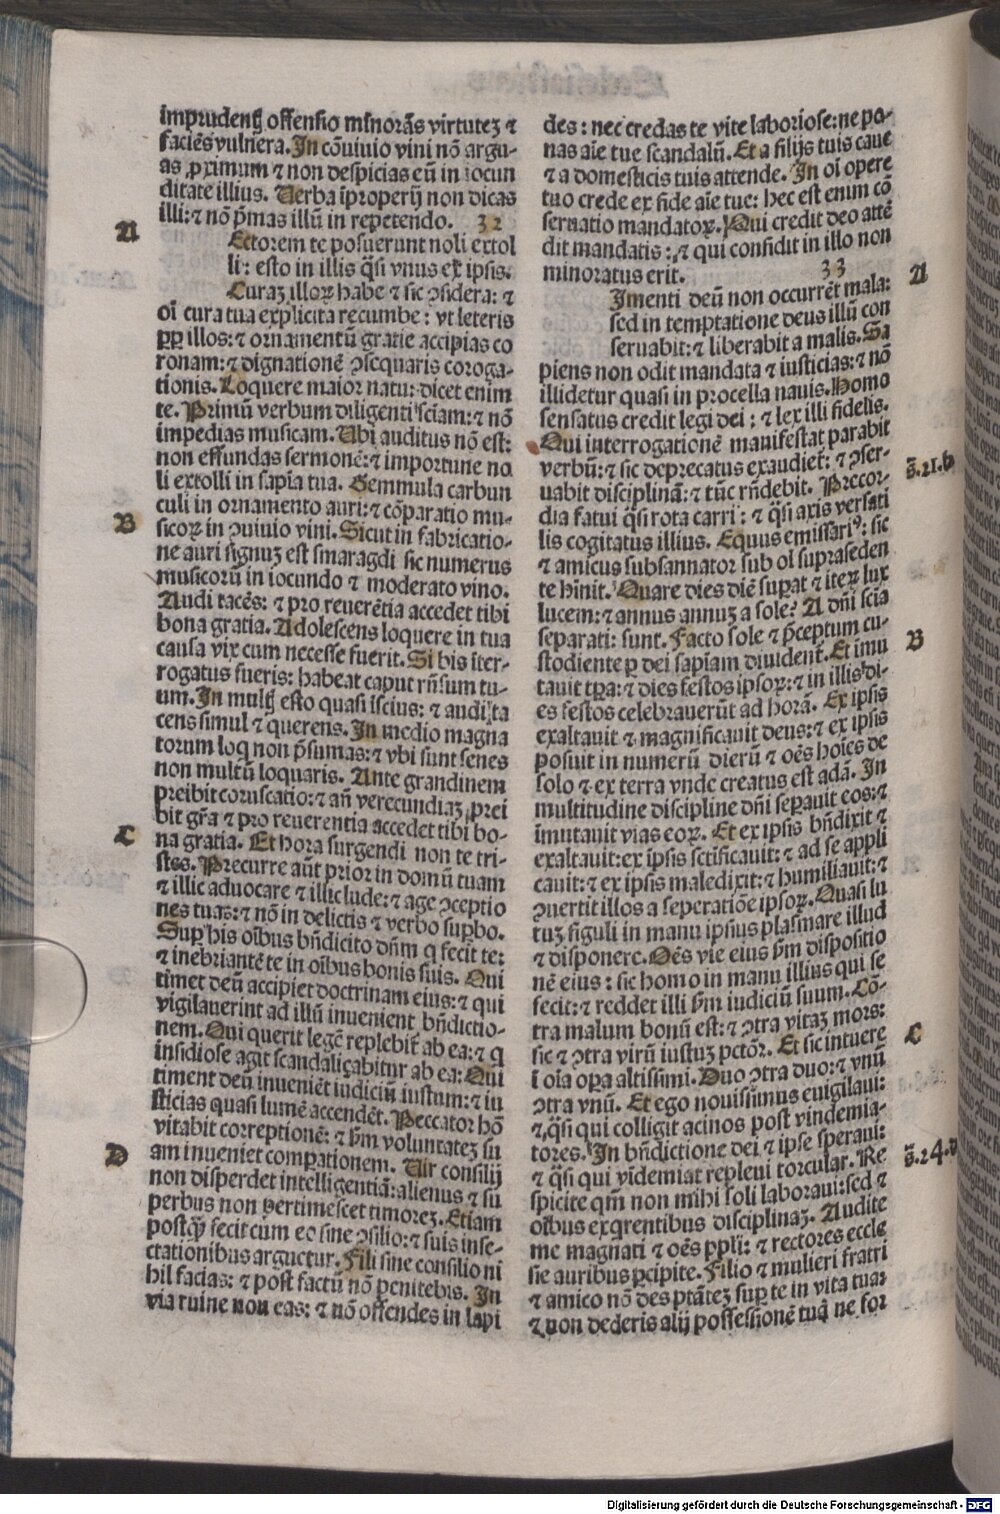 imprudentꝭ offensio minorās virtuteꝫ ⁊
faciēs vulnera. In cōuiuio vini nō argu-
as ꝓximum ⁊ non despicias eū in iocun
ditate illius. Uerba īproperij non dicas
illi: ⁊ nō p̄mas illū in repetendo. 32
A
Ectorem te posuerunt noli extol
li: esto in illis q̄si vnus ex ipsis.
Curaꝫ illoꝝ habe ⁊ sic ↄsidera: ⁊
oī cura tua explicita recumbe: vt leteris
ꝓp̄ illos: ⁊ ornamentū gratie accipias co
ronam: ⁊ dignationē ↄsequaris coroga-
tionis. Loquere maior natu: dicet enim
te. Primū verbum diligenti sciam: ⁊ nō
impedias musicam. Ubi auditus nō est:
non effundas sermonē: ⁊ importune no
li extolli in sapīa tua. Gemmula carbun
culi in ornamento auri: ⁊ cōparatio mu-
B
sicoꝝ in ↄuiuio vini. Sicut in fabricatio-
ne auri signuꝫ est smaragdi sic numerus
musicorū in iocundo ⁊ moderato vino.
Audi tacēs: ⁊ pro reuerētia accedet tibi
bona gratia. Adolescens loquere in tua
causa vix cum necesse fuerit. Si bis īter-
rogatus fueris: habeat caput rn̄sum tu-
um. In multꝭ esto quasi īscius: ⁊ audi ta
cens simul ⁊ querens. In medio magna
torum loq̄ non p̄sumas: ⁊ vbi sunt senes
non multū loquaris. Ante grandinem
preibit coruscatio: ⁊ an̄ verecundiaꝫ p̄rei
bit gr̄a ⁊ pro reuerentia accedet tibi bo-
C
na gratia. Et hora surgendi non te tri-
stes. Precurre aūt prior in domū tuam
⁊ illic aduocare ⁊ illic lude: ⁊ age ↄceptio
nes tuas: ⁊ nō in delictis ⁊ verbo suꝑbo.
Suꝑ his oībus bn̄dicito dn̄m q̄ fecit te:
⁊ inebriantē te in oībus bonis suis. Qui
timet deū accipiet doctrinam eius: ⁊ qui
vigilauerint ad illū inuenient bn̄dictio-
nem. Qui querit legē replebit̄ ab ea: ⁊ q̄
insidiose agit scandaliçabitur ab ea. Qui
timent deū inueniēt iudiciū iustum: ⁊ iu
sticias quasi lumē accendēt. Peccator hō
vitabit correptionē: ⁊ ẜm voluntateꝫ su
D
am inueniet comꝑationem. Uir consilij
non disperdet intelligentiā: alienus ⁊ su
perbus non ꝑertimescet timoreꝫ. Etiam
postq̄ꝫ fecit cum eo sine ↄsilio: ⁊ suis inse-
ctationibus arguetur. Fili sine consilio ni
hil facias: ⁊ post factū nō penitebis. In
via ruine non eas: ⁊ nō offendes in lapi
des: nec credas te vite laboriose: ne po-
nas aīe tue scandalū. Et a filijs tuis caue
⁊ a domesticis tuis attende. In oī opere
tuo crede ex fide aīe tue: hec est enim cō
seruatio mandatoꝝ. Qui credit deo attē
dit mandatis: ⁊ qui confidit in illo non
minoratus erit. 33
A
Imenti deū non occurrēt mala:
sed in temptatione deus illū con
seruabit: ⁊ liberabit a malis. Sa
piens non odit mandata ⁊ iusticias: ⁊ nō
illidetur quasi in procella nauis. Homo
sensatus credit legi dei: ⁊ lex illi fidelis.
Qui interrogationē manifestat parabit
verbū: ⁊ sic deprecatus exaudiet̄: ⁊ ↄser-
s̄. 21. b
uabit disciplinā: ⁊ tūc rn̄debit. Precor-
dia fatui q̄si rota carri: ⁊ q̄si axis versati
lis cogitatus illius. Equus emissariꝰ: sic
⁊ amicus subsannator sub oī supraseden
te hīnit. Quare dies diē suꝑat ⁊ iteꝝ lux
lucem: ⁊ annus annuꝫ a sole? A dn̄i scīa
separati: sunt. Facto sole ⁊ p̄ceptum cu-
B
stodiente ꝑ dei sapīam diuident̄. Et īmu
tauit tp̄ra: ⁊ dies festos ipsoꝝ: ⁊ in illis di-
es festos celebrauerūt ad horā. Ex ipsis
exaltauit ⁊ magnificauit deus: ⁊ ex ipsis
posuit in numerū dierū ⁊ oēs hoīes de
solo ⁊ ex terra vnde creatus est adā. In
multitudine discipline dn̄i seꝑauit eos: ⁊
īmutauit vias eoꝝ. Et ex ipsis bn̄dixit ⁊
exaltauit: ex ipsis sctīficauit: ⁊ ad se appli
cauit: ⁊ ex ipsis maledixit: ⁊ humiliauit: ⁊
ↄuertit illos a seperatiōe ipsoꝝ. Quasi lu
tuꝫ figuli in manu ipsius plasmare illud
⁊ disponere. Oēs vie eius ẜm dispositio
nē eius: sic homo in manu illius qui se
fecit: ⁊ reddet illi ẜm iudiciū suum. Cō-
tra malum bonū est: ⁊ ↄtra vitaꝫ mors:
C
sic ⁊ ↄtra virū iustuꝫ pctōr. Et sic intuere
ī oīa oꝑa altissimi. Duo ↄtra duo: ⁊ vnū
ↄtra vnū. Et ego nouissimus euigilaui:
⁊ q̄si qui colligit acinos post vindemia-
tores. In bn̄dictione dei ⁊ ipse speraui:
s̄. 24. d
⁊ q̄si qui vīdemiat repleui torcular. Re
spicite qm̄ non mihi soli laboraui: sed ⁊
oībus exq̄rentibus disciplinaꝫ. Audite
me magnati ⁊ oēs ꝓpl̄i: ⁊ rectores eccle
sie auribus ꝑcipite. Filio ⁊ mulieri fratri
⁊ amico nō des ptāteꝫ suꝑ te in vita tua:
⁊ non dederis alij possessionē tuā ne for
Digitalisierung gefördert durch die Deutsche Forschungsgemeinschaft - DFG